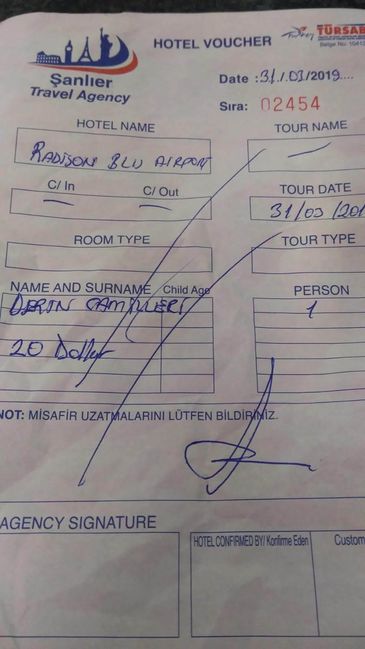 HOTEL VOUCHER
TÜRSAB
Belge No:
Şanlıer
Travel Agency
Date : 31/03/2019
Sıra: 02454
HOTEL NAME
TOUR NAME
RADISON BLU AIRPORT
C/ In
C/ Out
TOUR DATE
31/03/201
ROOM TYPE
TOUR TYPE
NAME AND SURNAME
Child Age
PERSON
CAMILLERI
1
20 Dollar
NOT: MİSAFİR UZATMALARINI LÜTFEN BİLDİRİNİZ.
AGENCY SIGNATURE
HOTEL CONFIRMED BY/ Konfirme Eden
Custom